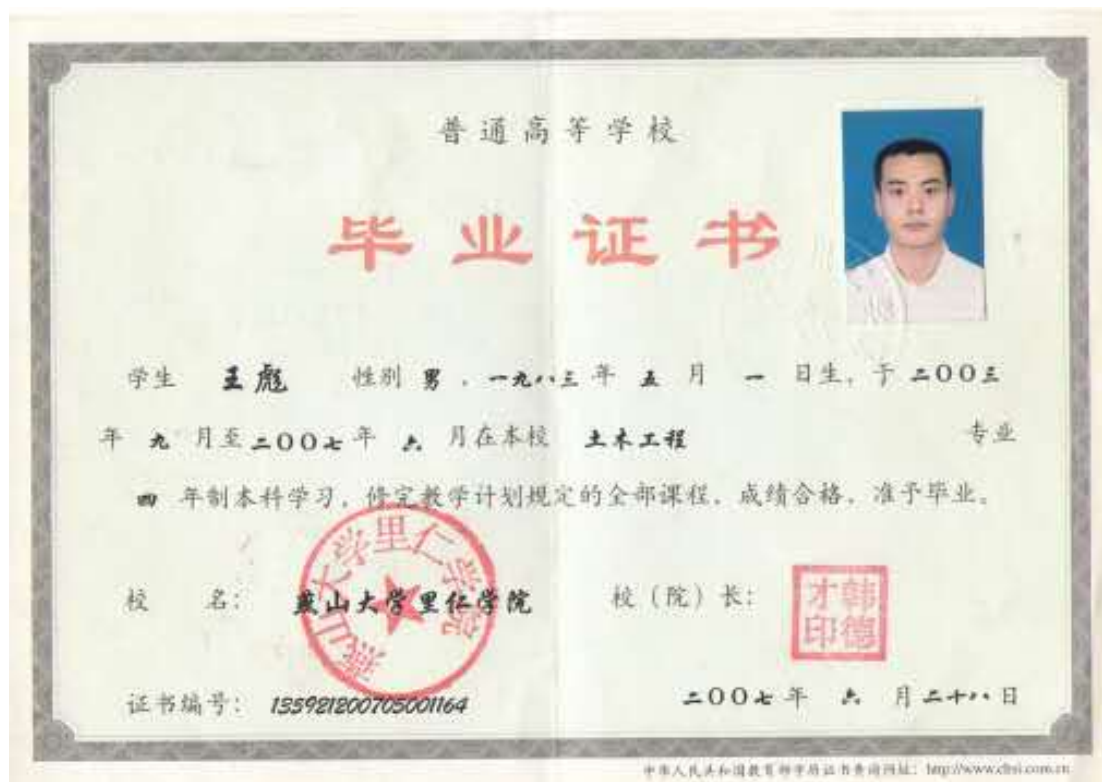 普通高等学校
毕业证书
学生 王彪 性别 男 ，一九八三 年 五 月 一 日生，于 二00三
年 九 月至 二00七 年 六 月在本校 土木工程 专业
四 年制本科学习，修完教学计划规定的全部课程，成绩合格，准予毕业。
校 名： 燕山大学里仁学院 校（院）长：
燕山大学里仁学院
韩德才印
证书编号： 135921200705001164 二00七 年 六 月 二十八 日
中华人民共和国教育部学历证书查询网址： http://www.chsi.com.cn